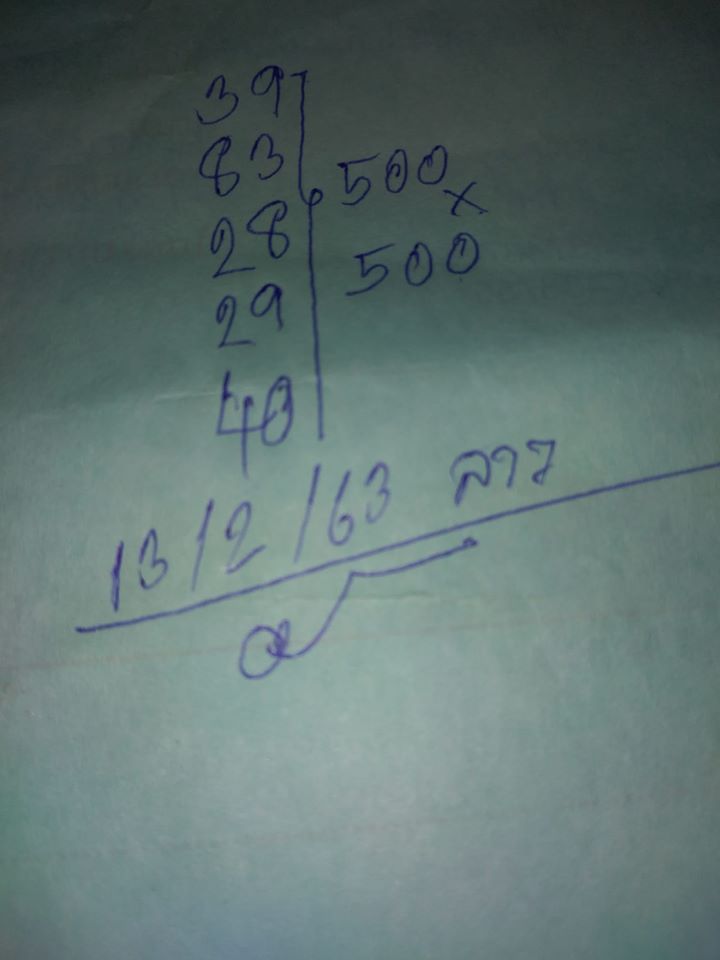 39
83
500
x
28
500
29
40
13/2/63 ลาว